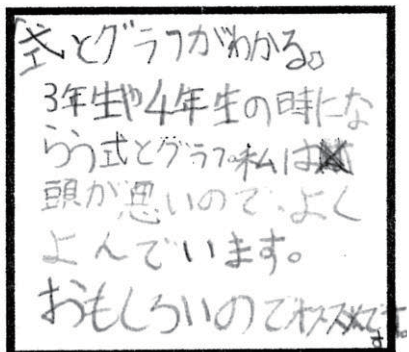 「式とグラフがわかる。」
3年生や4年生の時にな
らう式とグラフ。私は
頭が悪いので、よく
よんでいます。
おもしろいのでオススメです。